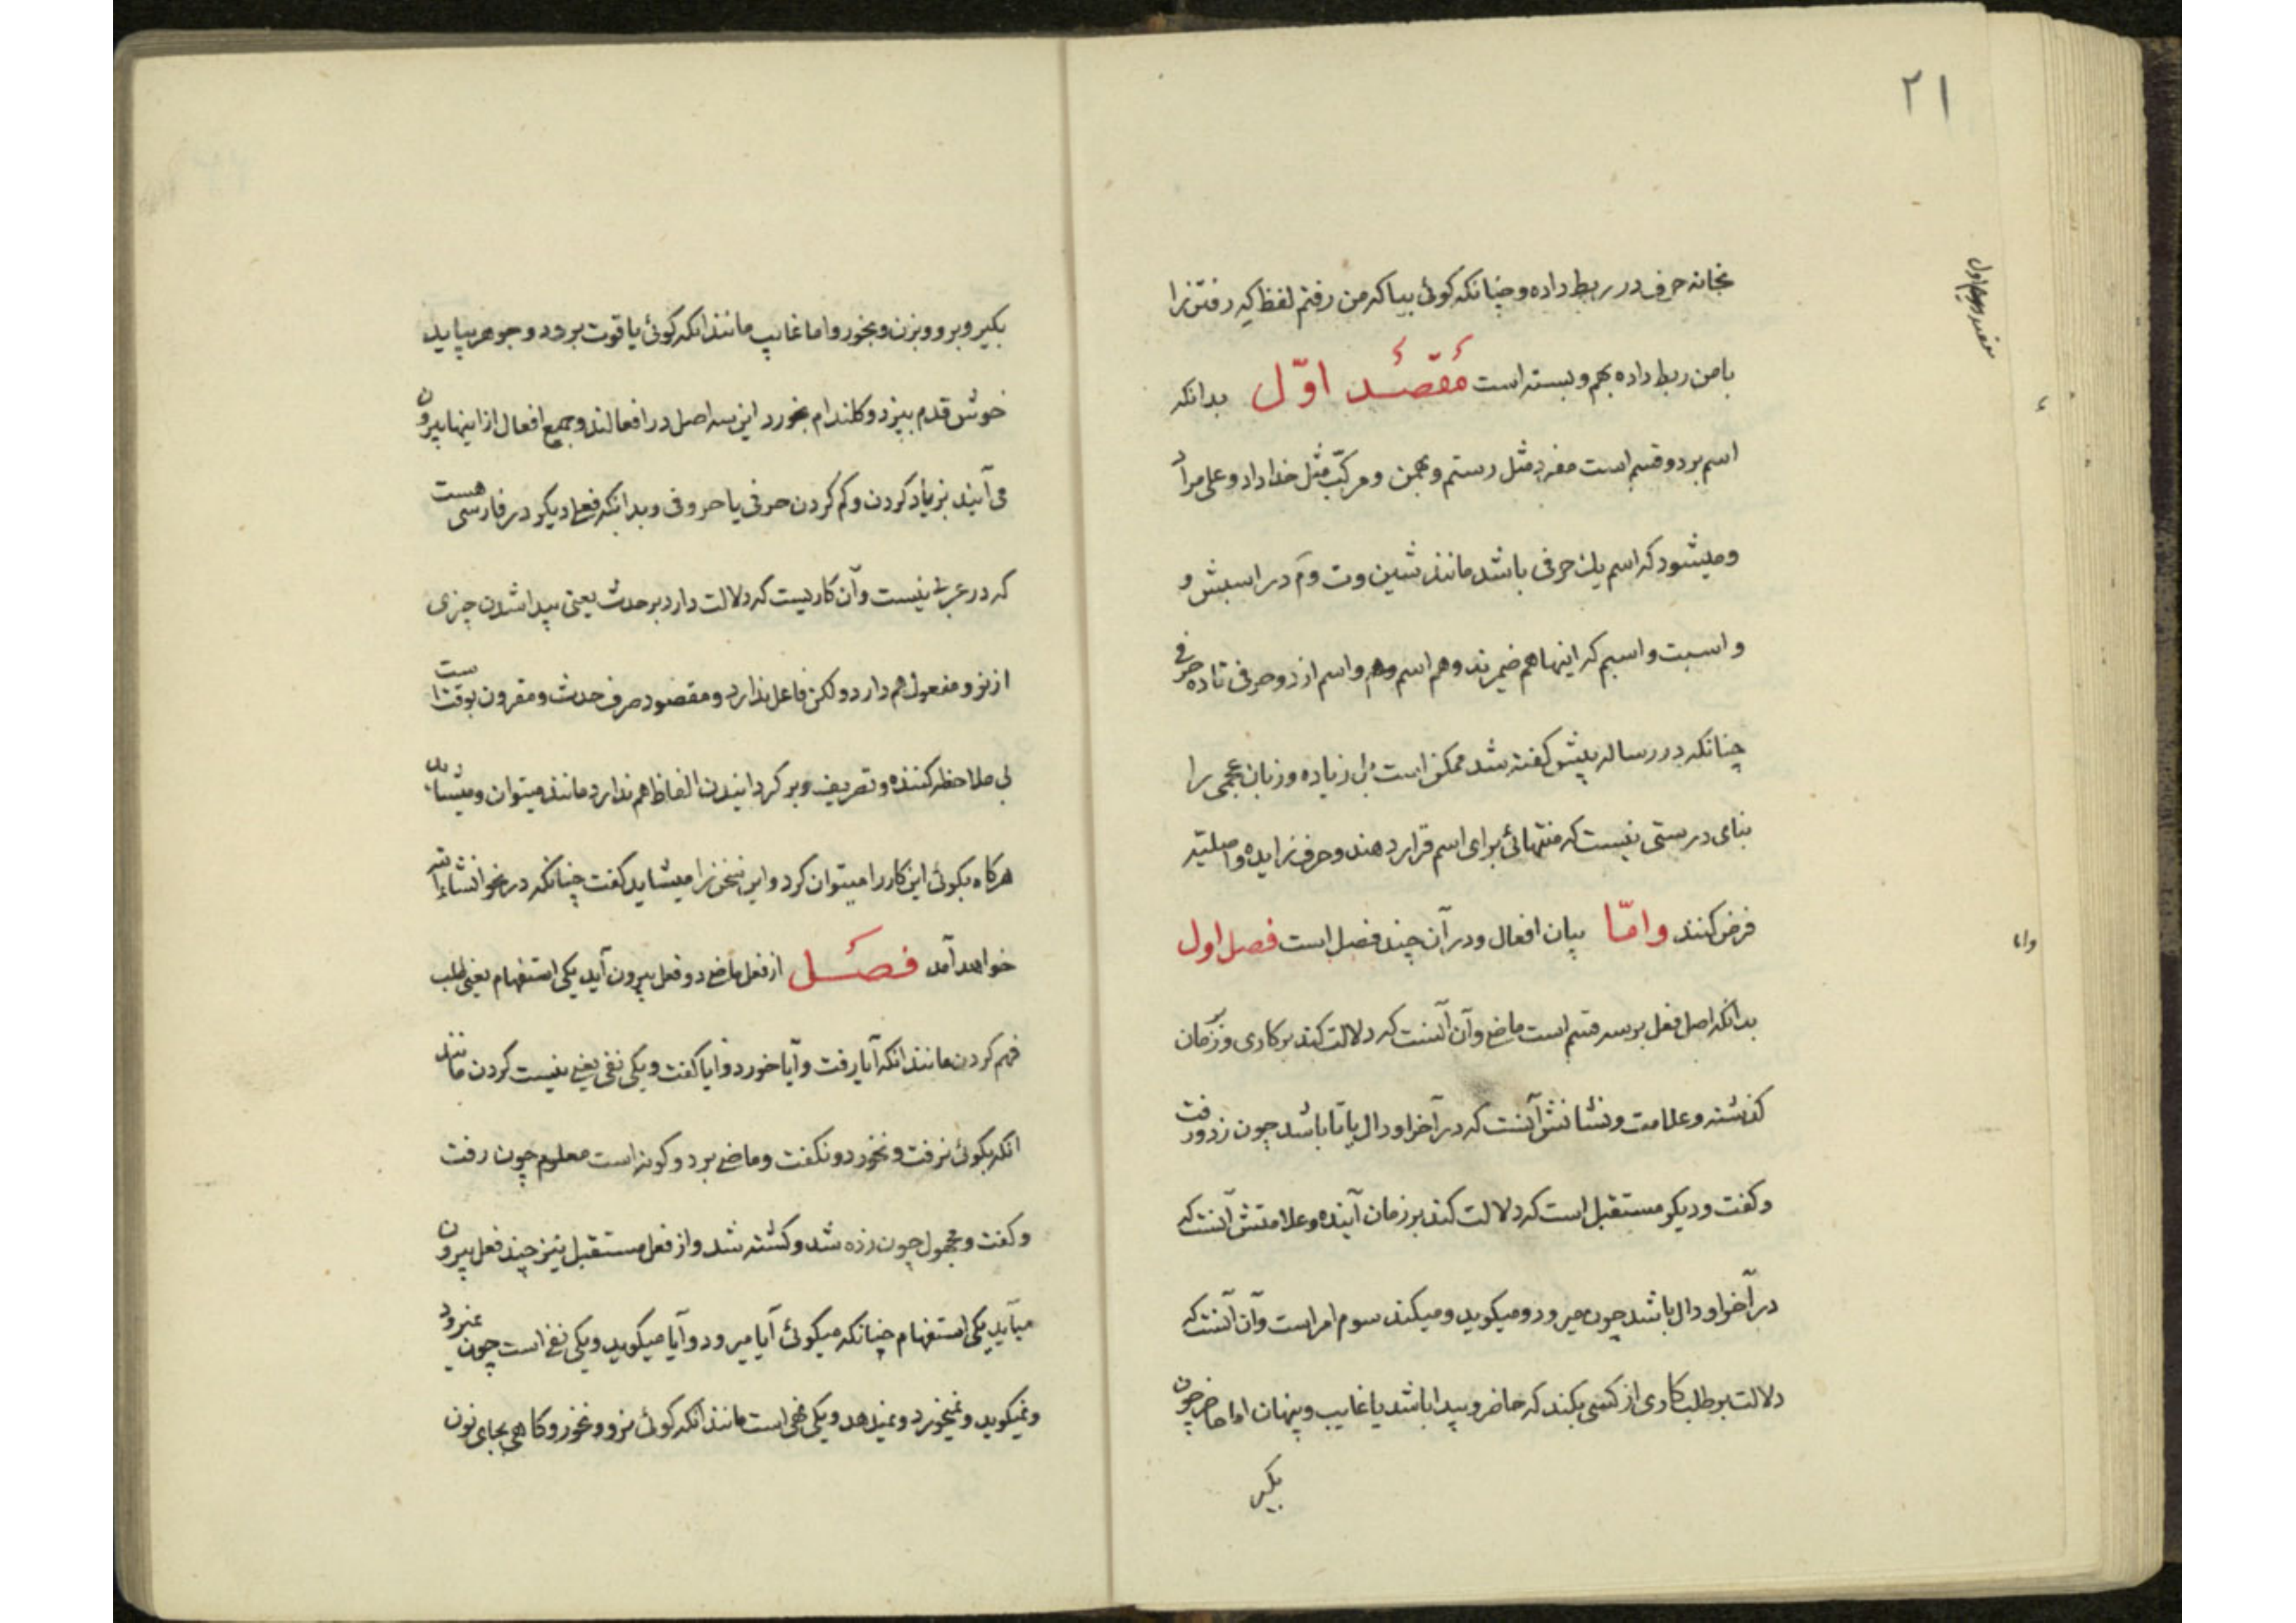 ۲۱
بخانه حرف در ربط داده و چنانکه کوئی بیا که من رفتم لفظ که رفتن را
با من ربط داده بهم و بسته است مقصد اوّل بدانکه
اسم بر دو قسم است مفرد مثل رستم و بهمن و مرکّب مثل خداداد و علی مراد
و میشود که اسم یک حرفی باشد مانند شین و ت و م در اسبش و
و اسبت و اسبم که اینها هم ضمیرند و هم اسم و هم و اسم از دو حرفی تا ده حرفی
چنانکه در رساله پیش کفته شد ممکن است بل زیاده و زبان عجمی را
بنای درستی نیست که منتهائی برای اسم قرار دهند و حرف زایده و اصلیّه
فرض کنند و امّا بیان افعال و در آن چند فصل است فصل اول
بدانکه اصل فعل بر سه قسم است ماضی و آن آنست که دلالت کند بر کاری و بر زمان
کذشته و علامت و نشانش آنست که در آخر او دال یا تا باشد چون زد و رفت
و کفت و دیکر مستقبل است که دلالت کند بر زمان آینده و علامتش آنست که
در آخر او دال باشد چون میرود و میکوید و میکند سوم امر است و آن آنست که
دلالت بر طلب کاری از کسی بکند که حاضر و پیدا باشد یا غایب و پنهان اما حاضر چون
بکیر
بکیر و برو و بزن و بخور و اما غایب مانند انکه کوئی یاقوت برود و جوهر بیاید
خوش قدم بپزد و کلندام بخورد این سه اصل در افعالند و جمیع افعال از اینها بیرون
می آیند بزیاد کردن و کم کردن حرفی یا حروفی و بدانکه فعلی دیکر در فارسی هست
که در عربی نیست و آن کاریست که دلالت دارد بر حدث یعنی پیدا شدن چیزی
از نو و مفعول هم دارد و لکن فاعل ندارد و مقصود صرف حدث و مقرون بوقت است
بی ملاحظه کننده و تصریف و بر کردانیدن الفاظ هم ندارد مانند میتوان و میشاید
هرکاه بکوئی این کار را میتوان کرد و این سخن را میشاید کفت چنانکه در نحو انشاء الله
خواهد آمد فصل از فعل ماضی دو فعل بیرون آید یکی استفهام یعنی طلب
فهم کردن مانند انکه آیا رفت و آیا خورد و ایا کفت و یکی نفی یعنی نیست کردن مانند
انکه بکوئی نرفت و نخورد و نکفت و ماضی بر دو کونه است معلوم چون رفت
و کفت و مجهول چون زده شد و کشته شد و از فعل مستقبل نیز چند فعل بیرون
میآید یکی استفهام چنانکه میکوئی آیا میرود و آیا میکوید و یکی نفی است چون نمیرود
و نمیکوید و نمیخورد و نمیدهد و یکی نهی است مانند انکه کوئی نرو و نخور و کاهی بجای نون